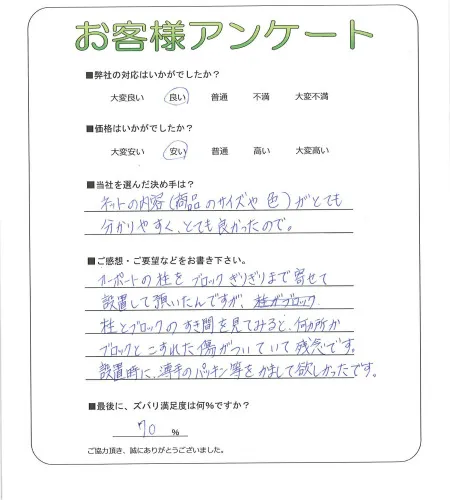 お客様アンケート
■弊社の対応はいかがでしたか？
大変良い 良い 普通 不満 大変不満
■価格はいかがでしたか？
大変安い 安い 普通 高い 大変高い
■当社を選んだ決め手は？
ネットの内容(商品のサイズや色)がとても
分かりやすく、とても良かったので。
■ご感想・ご要望などをお書き下さい。
カーポートの柱をブロックぎりぎりまで寄せて
設置して頂いたんですが、柱がブロック
柱とブロックのすき間を見てみると、何ヵ所か
ブロックとこすれた傷がついていて残念です。
設置時に、薄手のパッキン等をかまして欲しかったです。
■最後に、ズバリ満足度は何％ですか？
70 ％
ご協力頂き、誠にありがとうございました。